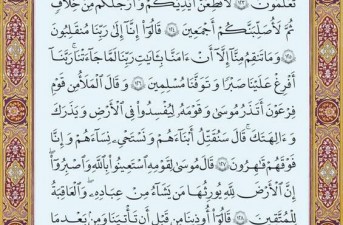 تَعْلَمُونَ ١٢٣ لَأُقَطِّعَنَّ أَيْدِيَكُمْ وَأَرْجُلَكُم مِّنْ خِلَٰفٍ
ثُمَّ لَأُصَلِّبَنَّكُمْ أَجْمَعِينَ ١٢٤ قَالُوٓا۟ إِنَّآ إِلَىٰ رَبِّنَا مُنقَلِبُونَ
١٢٥ وَمَا تَنقِمُ مِنَّآ إِلَّآ أَنْ ءَامَنَّا بِـَٔايَٰتِ رَبِّنَا لَمَّا جَآءَتْنَا ۚ رَبَّنَآ
أَفْرِغْ عَلَيْنَا صَبْرًا وَتَوَفَّنَا مُسْلِمِينَ ١٢٦ وَقَالَ ٱلْمَلَأُ مِن قَوْمِ
فِرْعَوْنَ أَتَذَرُ مُوسَىٰ وَقَوْمَهُۥ لِيُفْسِدُوا۟ فِى ٱلْأَرْضِ وَيَذَرَكَ
وَءَالِهَتَكَ ۚ قَالَ سَنُقَتِّلُ أَبْنَآءَهُمْ وَنَسْتَحْىِۦ نِسَآءَهُمْ وَإِنَّا
فَوْقَهُمْ قَٰهِرُونَ ١٢٧ قَالَ مُوسَىٰ لِقَوْمِهِ ٱسْتَعِينُوا۟ بِٱللَّهِ وَٱصْبِرُوٓا۟ ۖ
إِنَّ ٱلْأَرْضَ لِلَّهِ يُورِثُهَا مَن يَشَآءُ مِنْ عِبَادِهِۦ ۖ وَٱلْعَٰقِبَةُ
لِلْمُتَّقِينَ ١٢٨ قَالُوٓا۟ أُوذِينَا مِن قَبْلِ أَن تَأْتِيَنَا وَمِنۢ بَعْدِ مَا